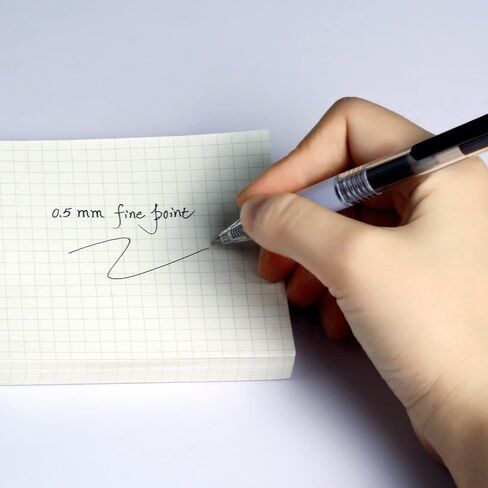 0.5 mm fine point